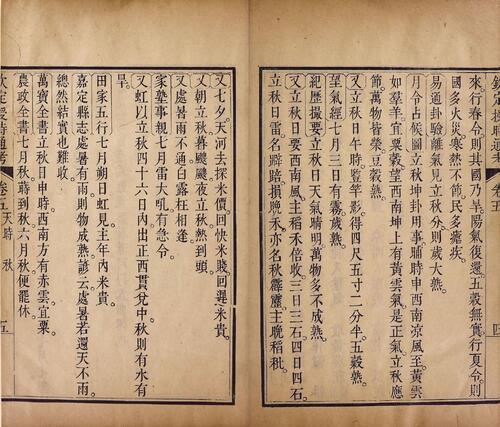 來行春令則其國乃旱陽氣復還五穀無實行夏令則
國多火災寒熱不節民多瘧疾
易通卦驗離氣見立秋分則歲大熟
月令占候圖立秋坤卦用事晡時申西南涼風至黃雲
如羣羊宜粟穀望西南坤上有黃雲氣是正氣立秋應
節萬物皆榮豆穀熟
又立秋日午時竪竿影得四尺五寸二分半五穀熟
望氣經七月三日有霧歲熟
紀歷撮要立秋日天氣晴明萬物多不成熟
又立秋日要西南風主稻禾倍收三日三石四日四石
立秋日雷名辟踣損晚禾亦名秋霹靂主晚稻秕
四
又七夕天河去探米價回快米賤回遲米貴
又朝立秋暮颼颼夜立秋熱到頭
又處暑雨不通白露枉相逢
家塾事親七月雷大吼有急令
又虹以立秋四十六日內出正西貫兌中秋則有水有
旱
田家五行七月朔日虹見主年內米貴
嘉定縣志處暑有雨則物成熟諺云處暑若還天不雨
總然結實也難收
萬寶全書立秋日申時西南方有赤雲宜粟
農政全書七月秋蒔到秋六月秋便罷休
欽定授時通考 卷五 天時 秋 五